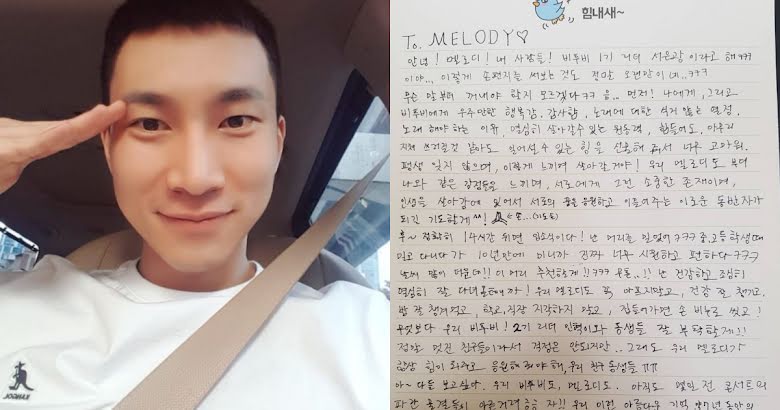 힘내새~
To. MELODY♡
안녕! 멜로디! 내 사람들! 비투비 1기 리더 서은광이라고 해ㅋㅋㅋ
이야... 이렇게 손편지를 써보는 것도 정말 오랜만이네..ㅋㅋㅋ
무슨 말부터 꺼내야 할지 모르겠다ㅋㅋ 음.. 먼저! 나에게, 그리고
비투비에게 우주만한 행복감, 감사함, 노래에 대한 식지 않는 열정,
노래 해야하는 이유, 열심히 살아갈수 있는 원동력, 힘들어도, 아무리
지쳐 쓰러질것 같아도 일어설 수 있는 힘을 선물해 줘서 너무 고마워.
평생 잊지 않으며, 이렇게 느끼며 살아갈게야! 우리 멜로디도 부디
나와 같은 감정들을 느끼며, 서로에게 그런 소중한 존재이며,
인생을 살아감에 있어서 서로의 꿈을 응원하고 이끌어주는 이로운 동반자가
되길 기도할게^^!
후~ 정확히 14시간 뒤면 입소식이다! 난 머리를 밀었어ㅋㅋㅋ 중,고등학생때
밀고 다니다가 10년만에 미니까 진짜 너무 시원하고 편하다ㅋㅋㅋ
날씨 많이 더운데!! 이 머리 추천할게!!ㅋㅋㅋ 무튼..!! 난 건강하고 조심히
열심히 잘 다녀올테니까! 우리 멜로디도 꼭 아프지말고, 건강 잘 챙기고,
밥 잘 챙겨먹고, 학교,직장 지각하지 말고, 집들어가면 손 비누로 씻고!
무엇보다 우리 비투비! 2기 리더 민혁이와 동생들 잘 부탁할게!!
정말 멋진 친구들이라서 걱정은 안되지만.. 그래도 우리 멜로디가
항상 힘이 되주고 응원해 줘야해, 우리 친구 동생들
아~ 다들 보고싶다. 우리 비투비도, 멜로디도. 아직도 몇일 전 콘서트의
파란 물결들이 아른거려
KANGOL